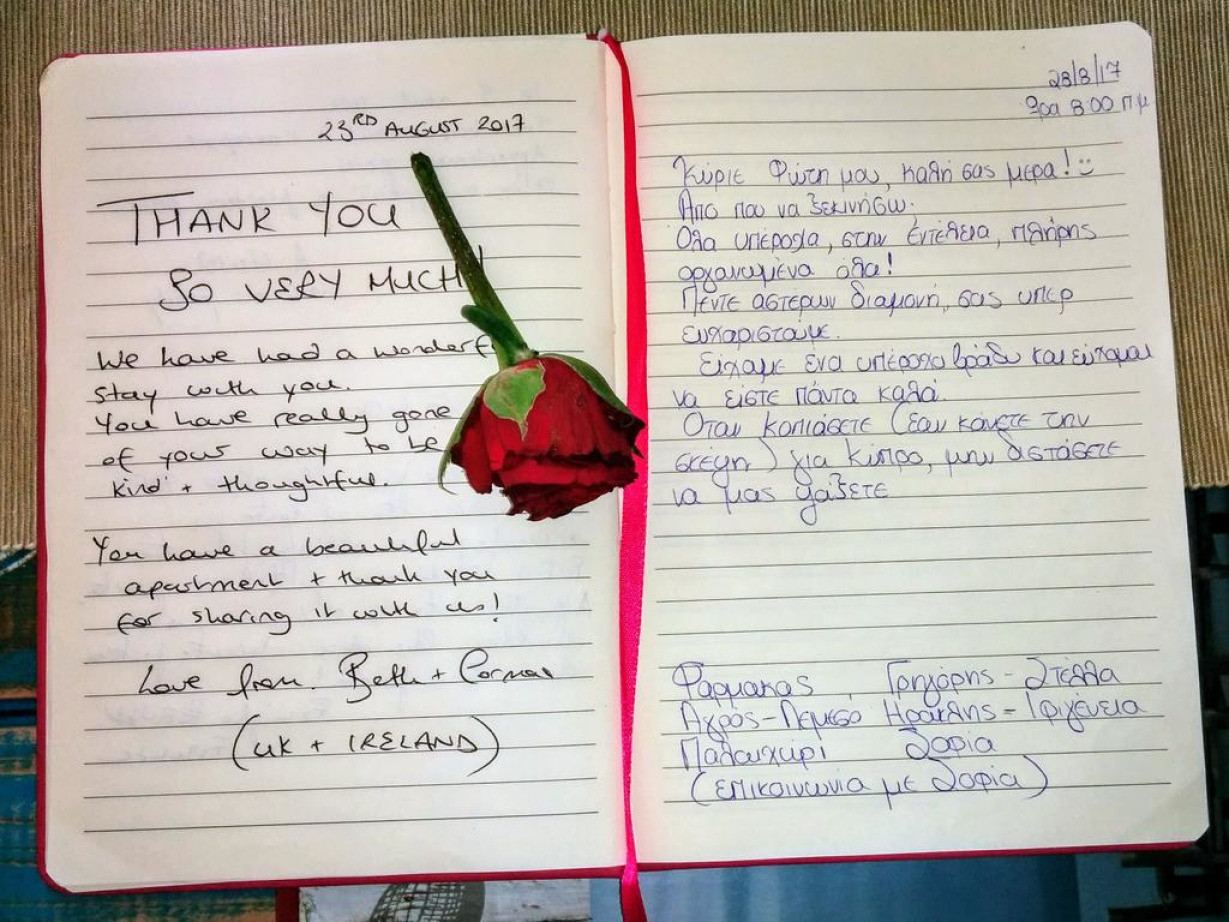 23RD AUGUST 2017
THANK YOU
SO VERY MUCH!
We have had a wonderf
stay with you.
You have really gone
of your way to be
kind + thoughtful.
You have a beautiful
apartment + thank you
for sharing it with us!
Love from Beth + Cormac
(UK + IRELAND)
28/8/17
Ώρα 8:00 π.μ
Κύριε Φώτη μου, καλή σας μερα!
Απο που να ξεκινήσω.
Ολα υπέροχα, στην εντέλεια, πλήρης
οργανωμένα όλα!
Πεντε αστερων διαμονή, σας υπερ
ευχαριστούμε.
Είχαμε ένα υπέροχο βράδυ και εύχομαι
να είστε πάντα καλά.
Οταν κοπιάσετε (εαν κάνετε την
σκέψη) για Κύπρο, μην διστάσετε
να μας ψάξετε
Φαρμακας, Γρηγόρης - Στέλλα
Αγρός-Λεμεσο Ηρακλης - Ιφιγένεια
Παλαιχώρι Σοφία
(επικοινωνία με Σοφία)